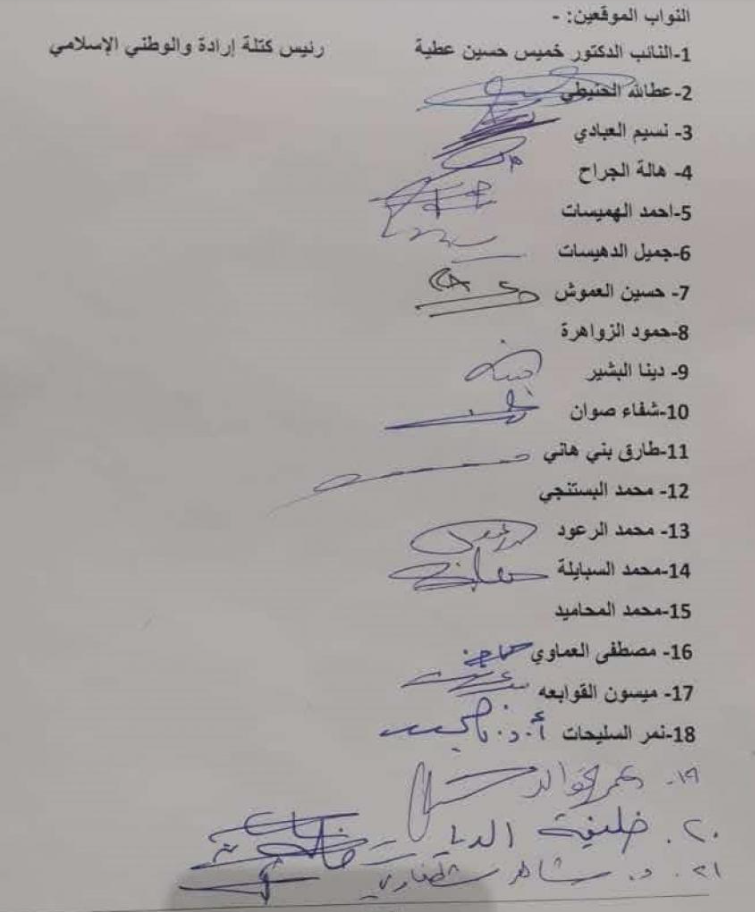 النواب الموقعين: -
1-النائب الدكتور خميس حسين عطية رئيس كتلة إرادة والوطني الإسلامي
2-عطالله الحنيطي
3- نسيم العبادي
4- هالة الجراح
5-احمد الهميسات
6-جميل الدهيسات
7- حسين العموش
8-حمود الزواهرة
9- دينا البشير
10-شفاء صوان
11-طارق بني هاني
12- محمد البستنجي
13- محمد الرعود
14-محمد السبايلة
15-محمد المحاميد
16- مصطفى العماوي
17- ميسون القوابعه
18-نمر السليحات
١٩-
٢٠. خليفة الديات
٢١. د. شاهر شطناوي